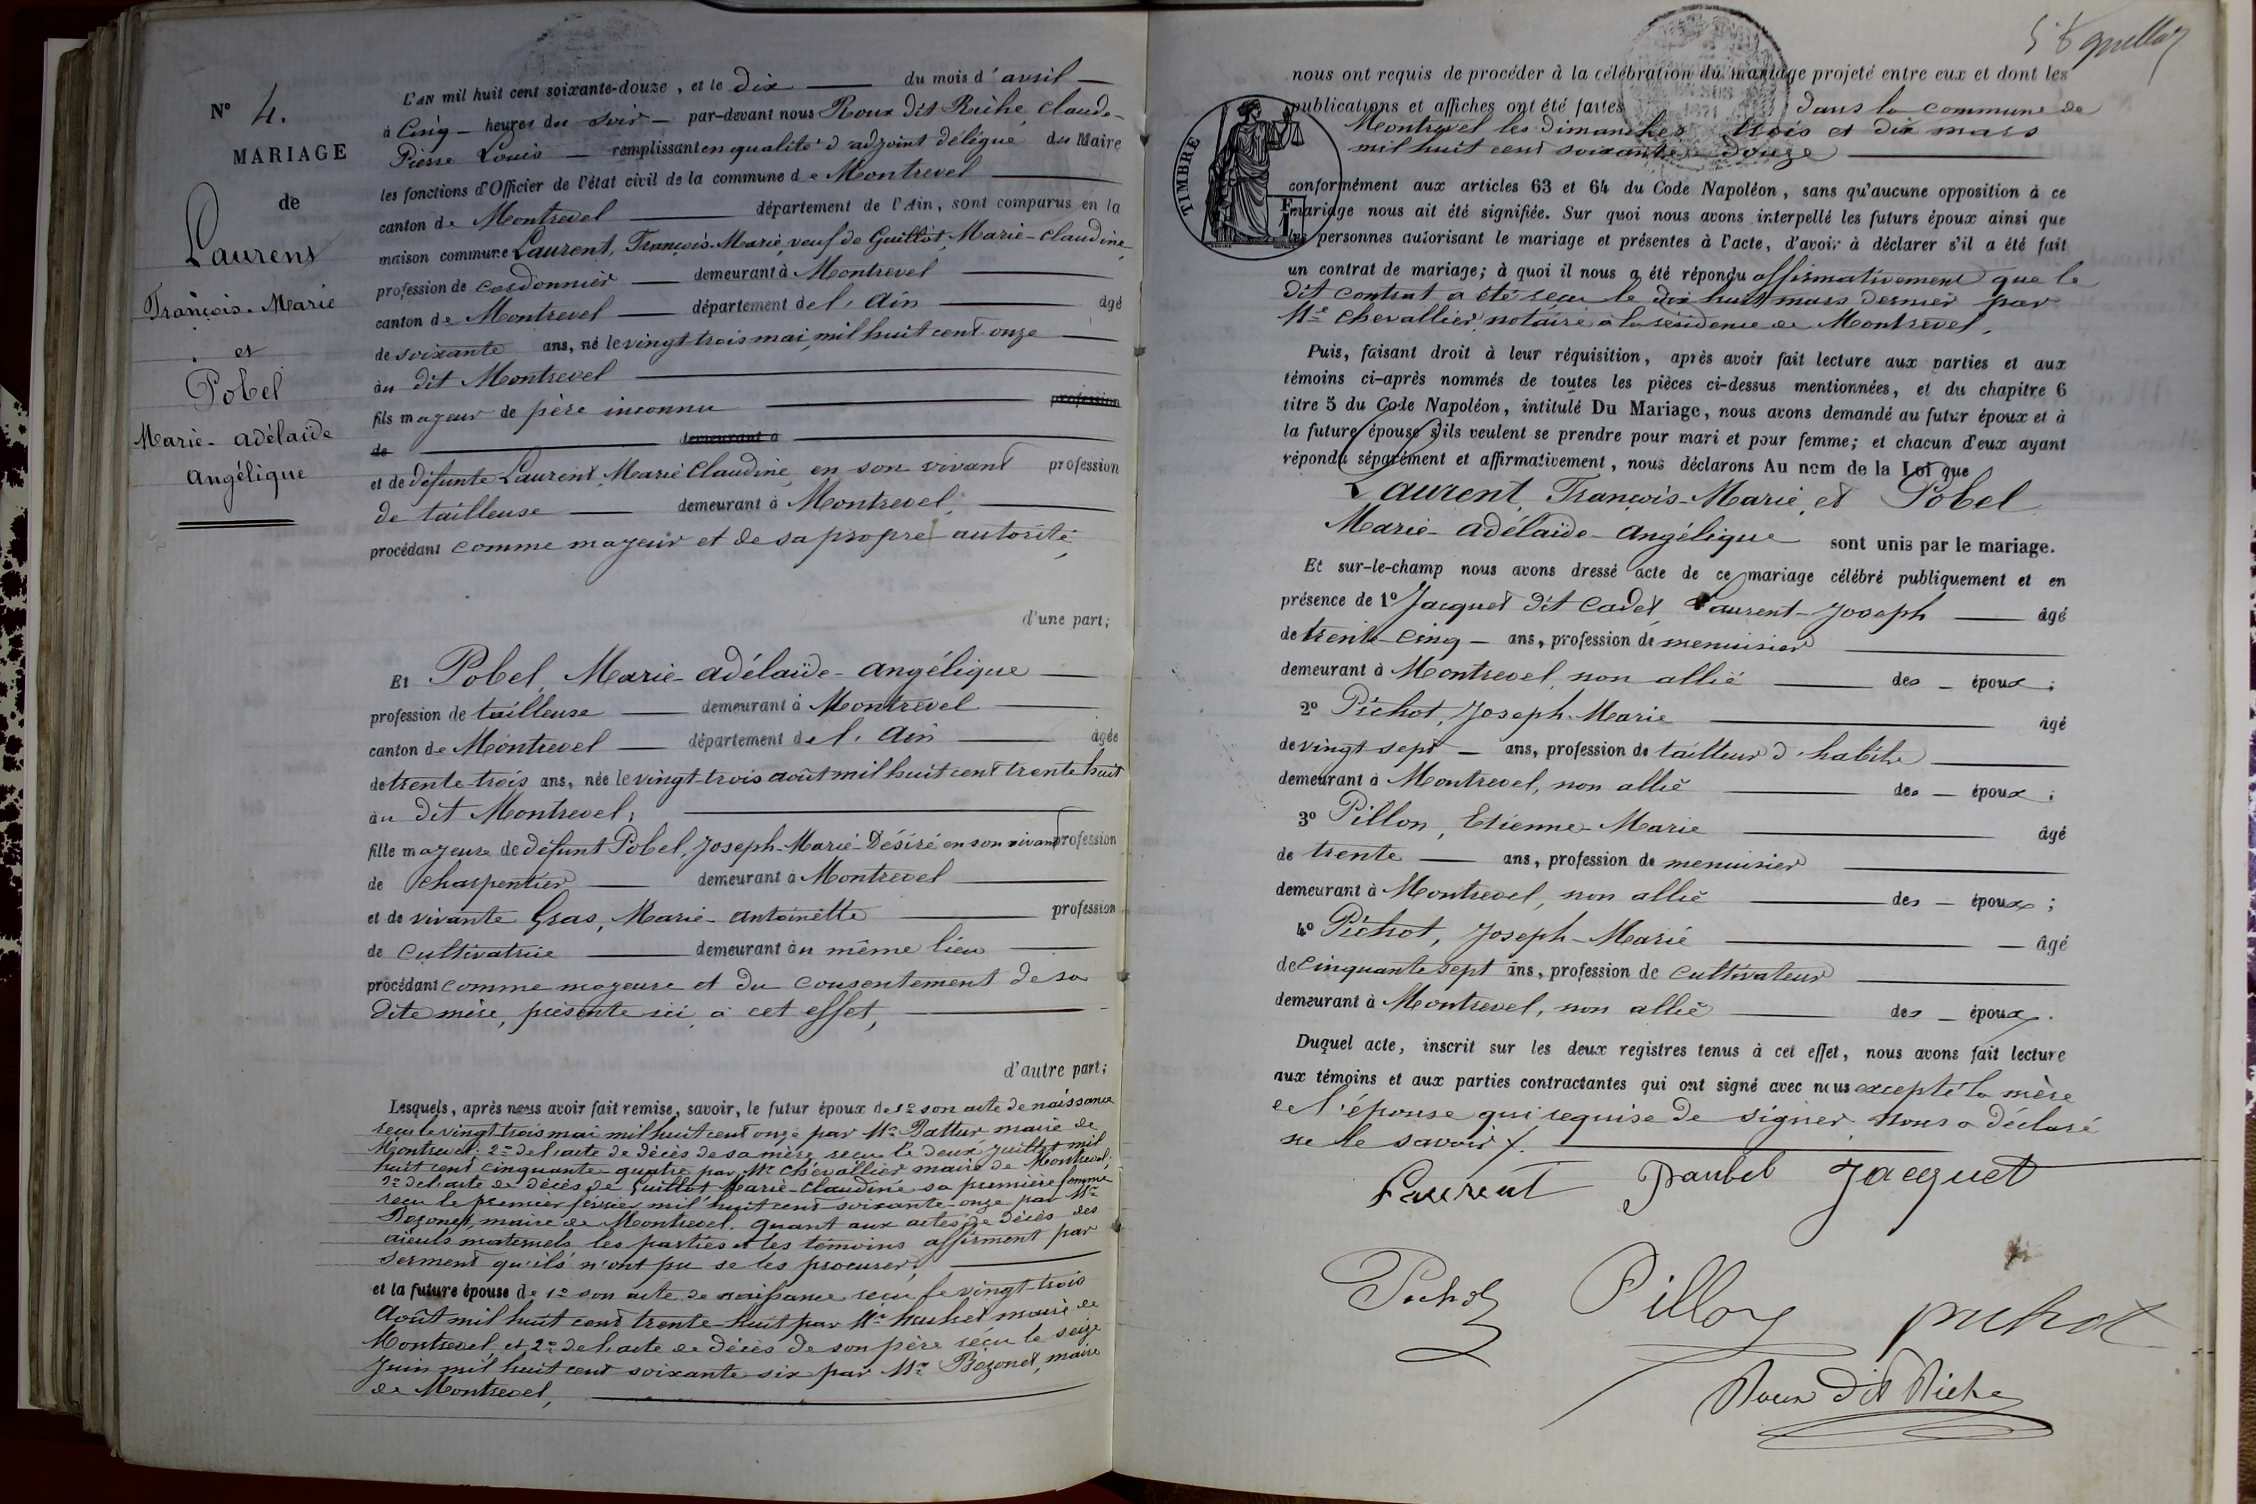 N° 4.
MARIAGE
de
Laurent
François-Marie
et
Pobel
Marie-Adélaïde
Angélique
L'AN mil huit cent soixante-douze, et le dix du mois d'avril
à Cinq heures du soir par-devant nous Roux dit Riche, Claude-
Pierre Louis remplissant en qualité d'adjoint délégué du Maire
les fonctions d'Officier de l'état civil de la commune de Montrevel
canton de Montrevel département de l'Ain, sont comparus en la
maison commune Laurent, François-Marie, veuf de Guillot, Marie-Claudine,
profession de cordonnier demeurant à Montrevel
canton de Montrevel département de l'Ain âgé
de soixante ans, né le vingt-trois mai mil huit cent onze
au dit Montrevel
fils majeur de père inconnu profession
de demeurant à
et de défunte Laurent, Marie Claudine, en son vivant profession
de tailleuse demeurant à Montrevel,
procédant comme majeur et de sa propre autorité,
d'une part;
Et Pobel, Marie-Adélaïde-Angélique
profession de tailleuse demeurant à Montrevel
canton de Montrevel département de l'Ain âgée
de trente-trois ans, née le vingt-trois août mil huit cent trente huit
au dit Montrevel,
fille majeure de défunt Pobel, Joseph-Marie-Désiré en son vivant profession
de Charpentier demeurant à Montrevel
et de vivante Gras, Marie-Antoinette profession
de Cultivatrice demeurant au même lieu
procédant comme majeure et du consentement de sa
dite mère, présente ici à cet effet,
d'autre part;
Lesquels, après nous avoir fait remise, savoir, le futur époux de 1° son acte de naissance
reçu le vingt-trois mai mil huit cent onze par Mr. Pattur maire de
Montrevel; 2° de l'acte de décès de sa mère reçu le deux juillet mil
huit cent cinquante quatre par Mr. Chevallier maire de Montrevel;
3° de l'acte de décès de Guillot Marie-Claudine sa première femme
reçu le premier février mil huit cent soixante-onze par Mr.
Bozonet, maire de Montrevel. Quant aux actes de décès des
aïeuls maternels les parties et les témoins affirment par
serment qu'ils n'ont pu se les procurer;
et la future épouse de 1° son acte de naissance reçu le vingt-trois
Août mil huit cent trente-huit par Mr. maire de
Montrevel, et 2° de l'acte de décès de son père reçu le seize
Juin mil huit cent soixante six par Mr. Bozonet, maire
de Montrevel,
nous ont requis de procéder à la célébration du mariage projeté entre eux et dont les
publications et affiches ont été faites dans la commune de
Montrevel les dimanches trois et dix mars
mil huit cent soixante-douze
TIMBRE
conformément aux articles 63 et 64 du Code Napoléon, sans qu'aucune opposition à ce
mariage nous ait été signifiée. Sur quoi nous avons interpellé les futurs époux ainsi que
les personnes autorisant le mariage et présentes à l'acte, d'avoir à déclarer s'il a été fait
un contrat de mariage; à quoi il nous a été répondu affirmativement que le
dit contrat a été reçu le dix huit mars dernier par
Me Chevallier, notaire à la résidence de Montrevel.
Puis, faisant droit à leur réquisition, après avoir fait lecture aux parties et aux
témoins ci-après nommés de toutes les pièces ci-dessus mentionnées, et du chapitre 6
titre 5 du Code Napoléon, intitulé Du Mariage, nous avons demandé au futur époux et à
la future épouse s'ils veulent se prendre pour mari et pour femme; et chacun d'eux ayant
répondu séparément et affirmativement, nous déclarons Au nom de la Loi que
Laurent, François-Marie, et Pobel
Marie-Adélaïde-Angélique sont unis par le mariage.
Et sur-le-champ nous avons dressé acte de ce mariage célébré publiquement et en
présence de 1° Jacquet dit Cadet, Laurent-Joseph âgé
de trente-cinq ans, profession de menuisier
demeurant à Montrevel, non allié des époux;
2° Pichot, Joseph-Marie âgé
de vingt sept ans, profession de tailleur d'habits
demeurant à Montrevel, non allié des époux;
3° Pillon, Etienne-Marie âgé
de trente ans, profession de menuisier
demeurant à Montrevel, non allié des époux;
4° Pichot, Joseph-Marie âgé
de cinquante sept ans, profession de cultivateur
demeurant à Montrevel, non allié des époux.
Duquel acte, inscrit sur les deux registres tenus à cet effet, nous avons fait lecture
aux témoins et aux parties contractantes qui ont signé avec nous excepté la mère
de l'épouse qui requise de signer, nous a déclaré
ne le savoir.
Laurent Jacquet
Pichot Pillon pichot
Roux dit Riche